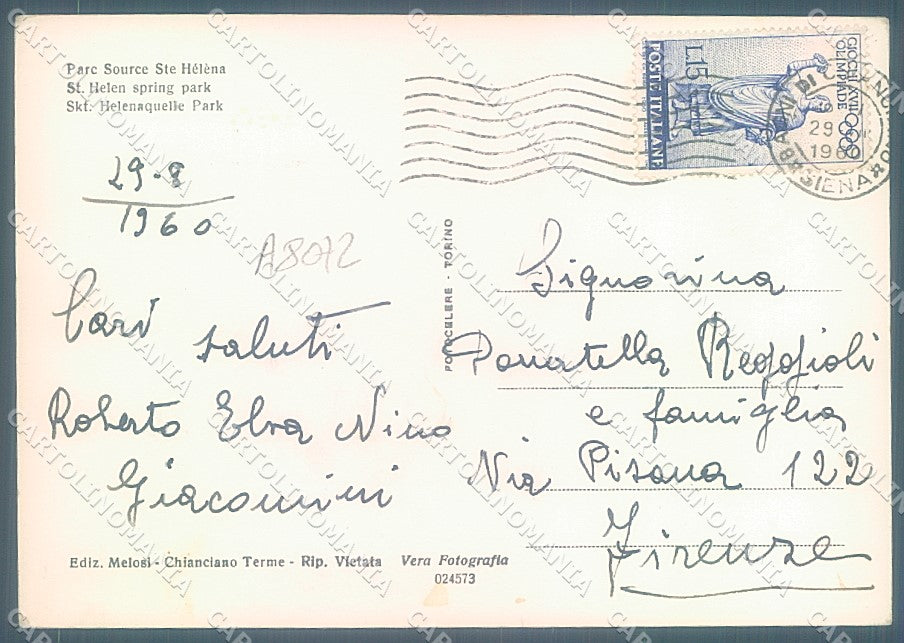 Parc Source Ste Hélèna
St. Helen spring park
Skt. Helenaquelle Park
29-8
1960
A8072
Cari saluti
Roberto Elva Nino
Giacomini
Ediz. Melosi - Chianciano Terme - Rip. Vietata Vera Fotografia
024573
FOTOCELERE - TORINO
GIOCHI XVII
OLIMPIADE
L.15
POSTE ITALIANE
29
1960
SIENA
Signorina
Donatella Reggioli
e famiglia
Via Pisana 122
Firenze
CARTOLINOMANIA